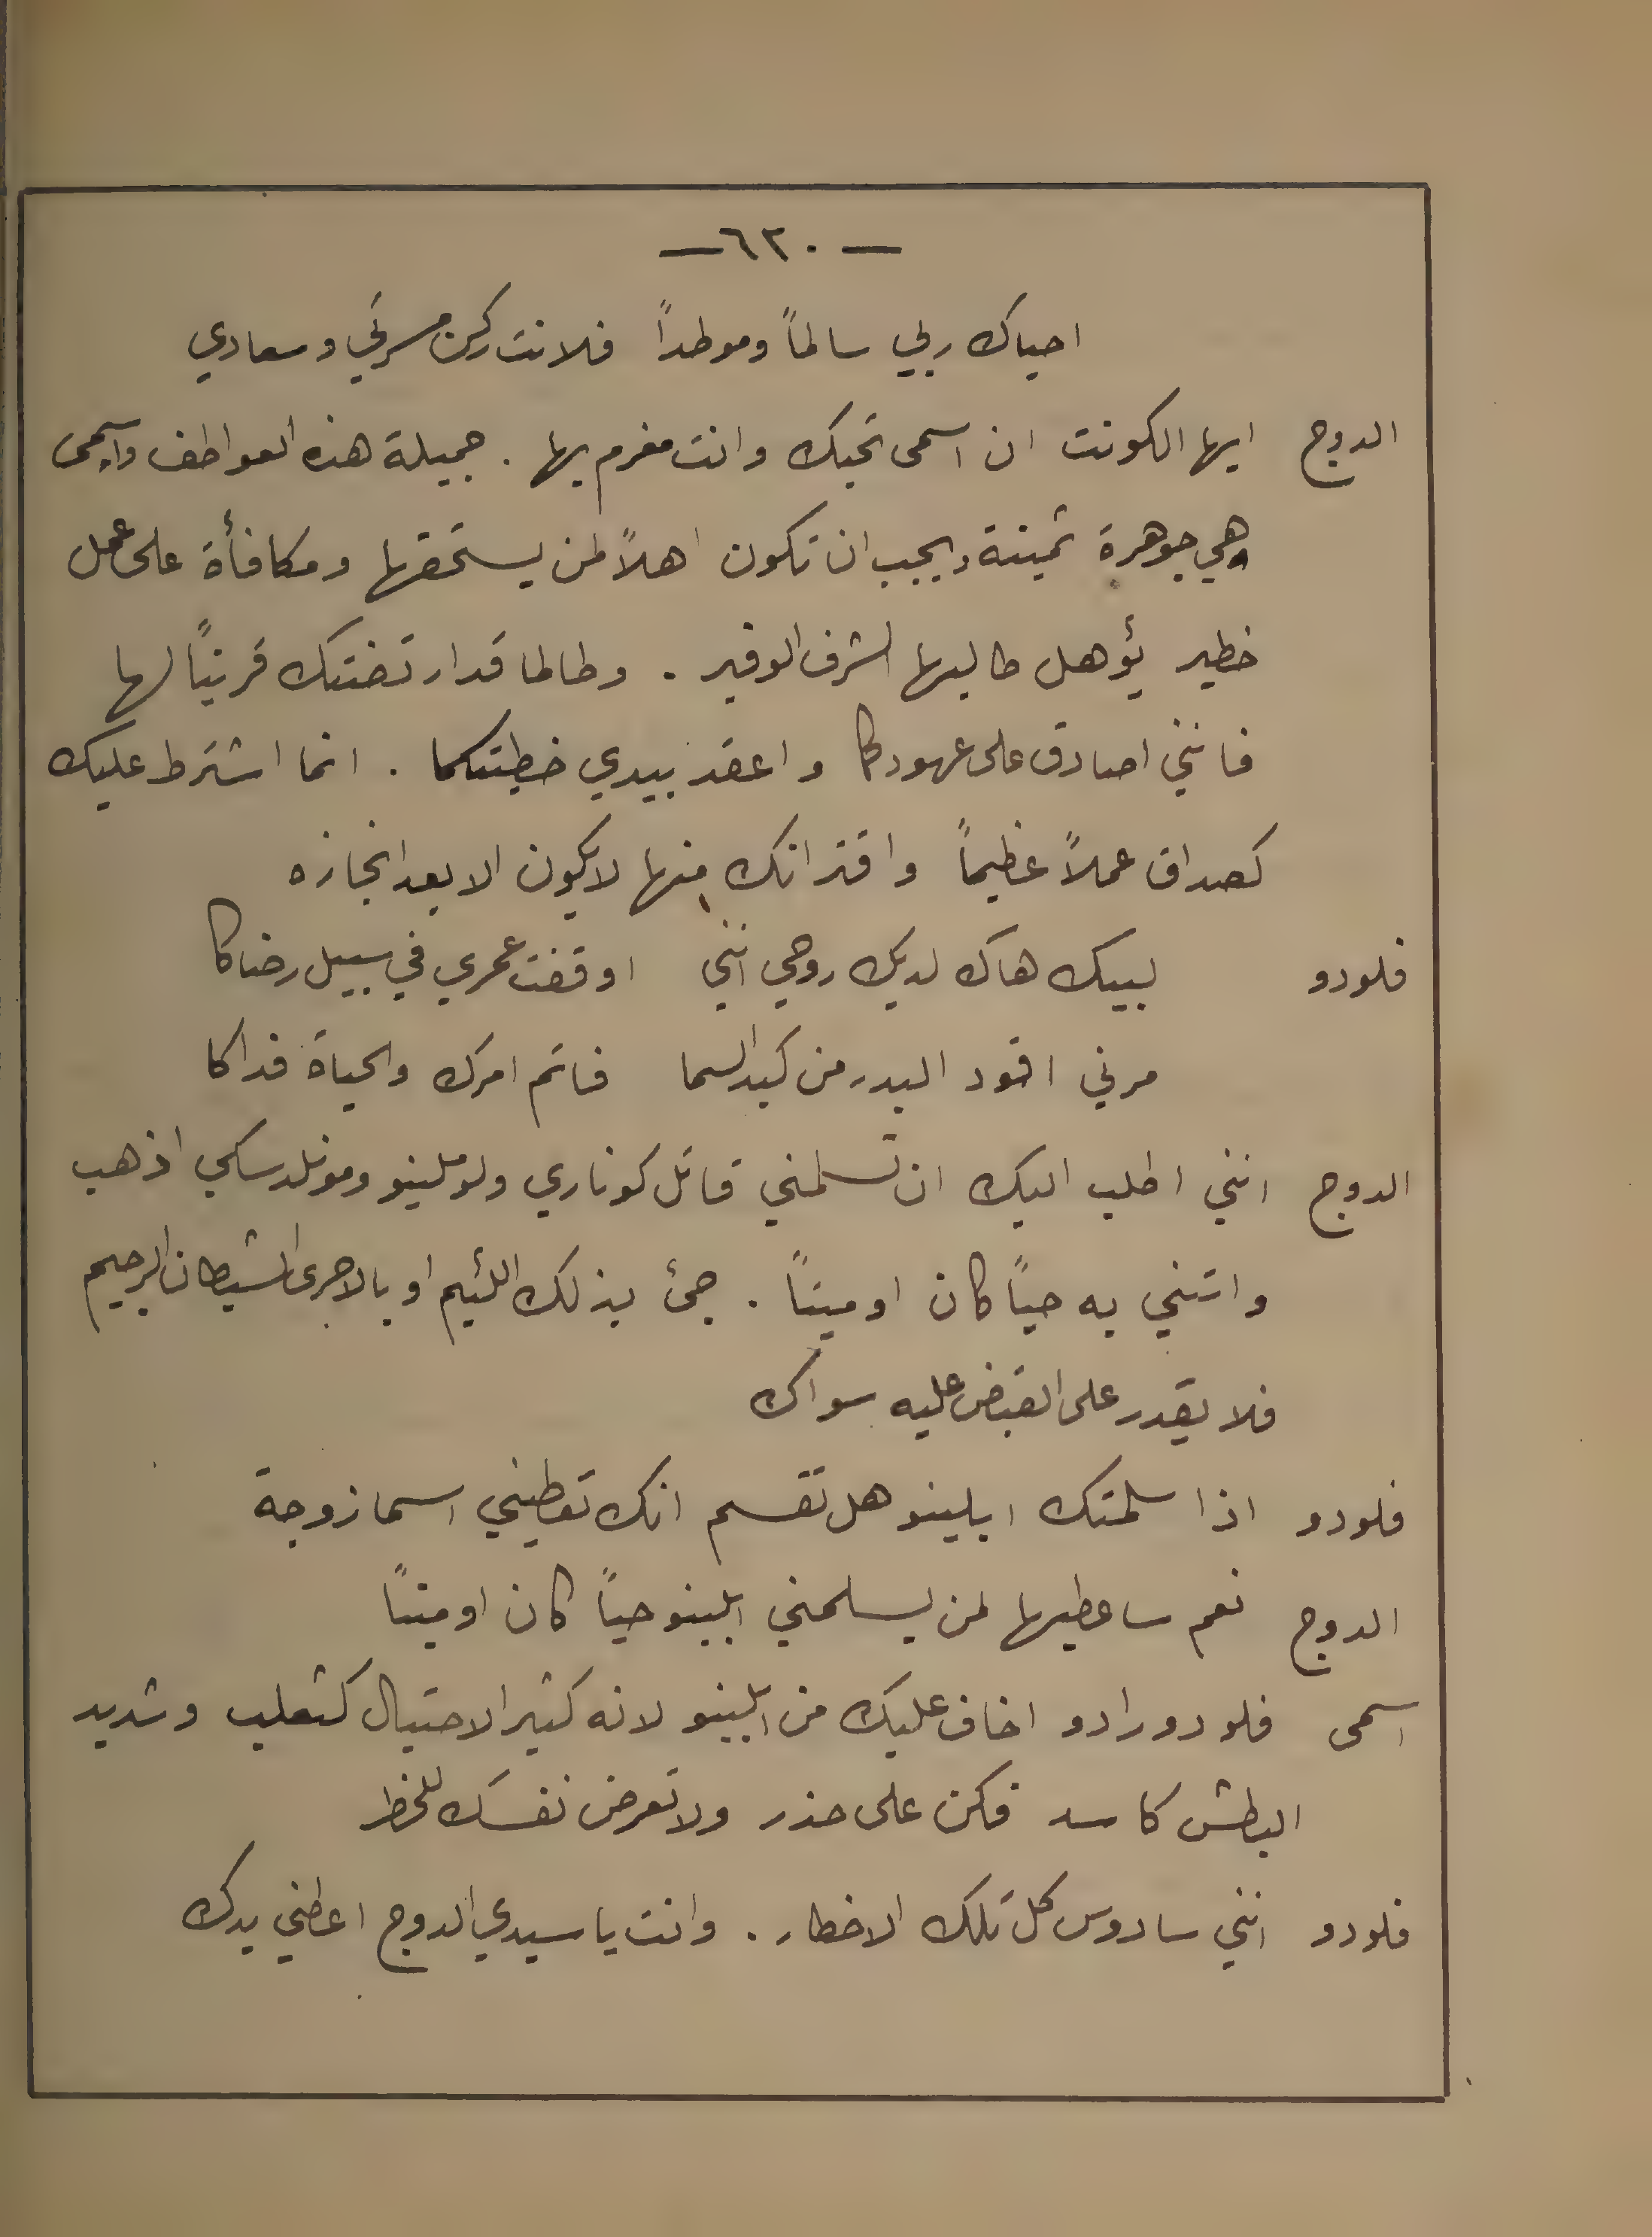 — ٦٣٠ —
احياك ربي سالماً وموطداً فلانت ركن مسرتي وسعادي
الدوج ايها الكونت ان اسمى تحبك وانت مغرم بها . جميلة هذه العواطف واسمى
وهي جوهرة ثمينة ويجب ان تكون اهلاً لمن يستحقها ومكافأة على عمل
خطير يؤهل طالبها الشرف الوفير . وطالما قد ارتضتك قريناً لها
فانني اصادق على عهودكما واعقد بيدي خطبتكما . انما اشترط عليك
كصداق عملاً عظيماً واقترانك منها لا يكون الا بعد انجازه
فلودو لبيك هاك لديك روحي انني اوقفت عمري في سبيل رضاكا
مرني اقود البدر من كبد السما فاتم امرك والحياة فداكا
الدوج انني اطلب اليك ان تسلمني قاتل كوناري ولوملينو ومونلدسكي اذهب
واتنني به حياً كان او ميتاً . جئ بذلك اللئيم او بالاحرى الشيطان الرجيم
فلا يقدر على القبض عليه سواك
فلودو اذا سلمتك ابلينو هل تقسم انك تعطيني اسما زوجة
الدوج نعم ساعطيها لمن يسلمني ابلينو حياً كان او ميتاً
اسمى فلودورادو اخاف عليك من ابلينو لانه كثير الاحتيال كثعلب وشديد
البطش كاسد فكن على حذر ولا تعرض نفسك للخطر
فلودو انني سادوس كل تلك الاخطار . وانت يا سيدي الدوج اعطني يدك